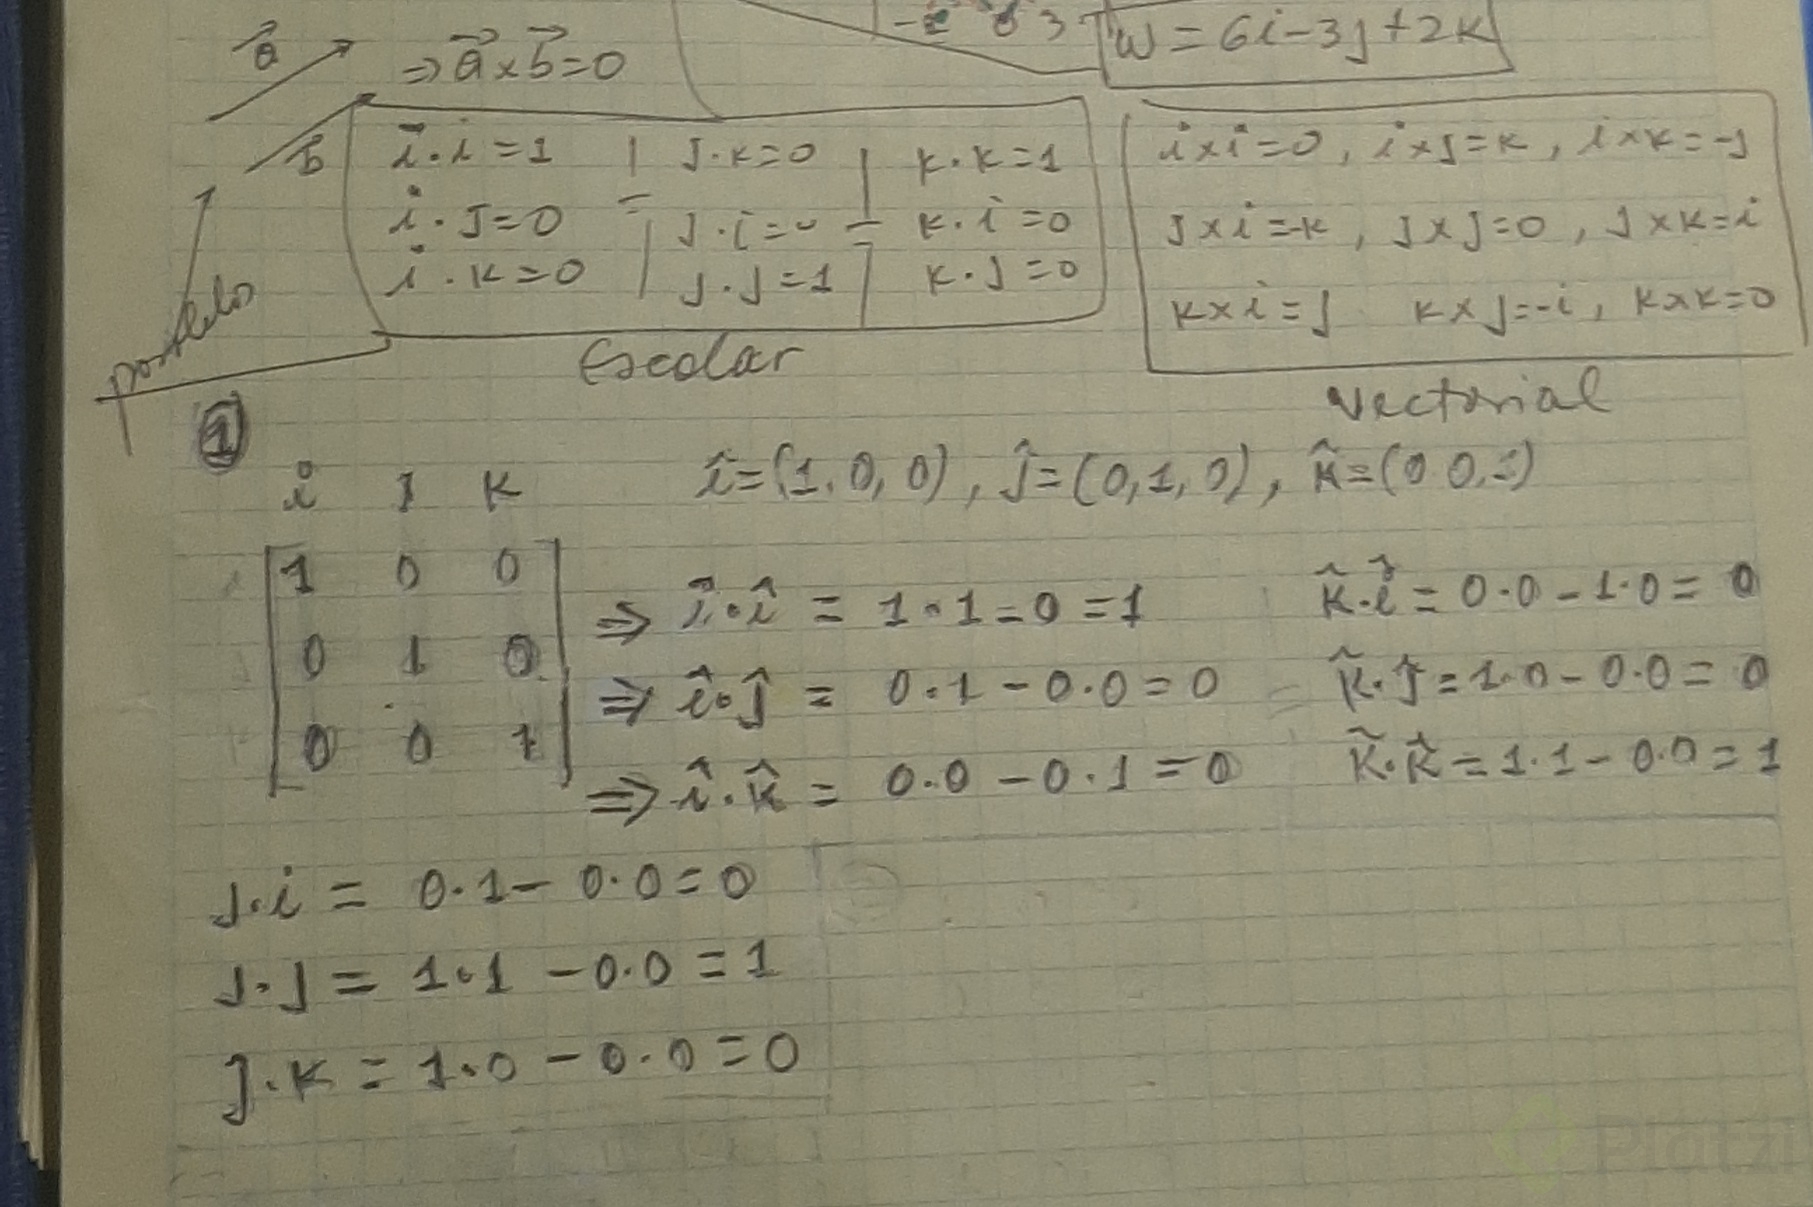 a⃗
⇒ a⃗ x b⃗ = 0
b⃗
W = 6i-3j+2k
i·i = 1 | j·k=0 | k·k=1
i·j=0 | j·i=0 | k·i=0
i·k=0 | j·j=1 | k·j=0
Escalar
i×i=0, i×j=k, i×k=-j
j×i=-k, j×j=0, j×k=i
k×i=j k×j=-i, k×k=0
Vectorial
①
î=(1,0,0), ĵ=(0,1,0), k̂=(0 0,1)
i j k
1 0 0
0 1 0
0 0 1
⇒ î·î = 1·1-0=1
⇒ î·ĵ = 0·1-0·0=0
⇒ î·k̂ = 0·0-0·1=0
k̂·î = 0·0-1·0= 0
k̂·ĵ=1·0-0·0= 0
k̂·k̂=1·1-0·0=1
j·i = 0·1- 0·0=0
j·j = 1·1 -0·0=1
j·k = 1·0 -0·0=0
Platzi